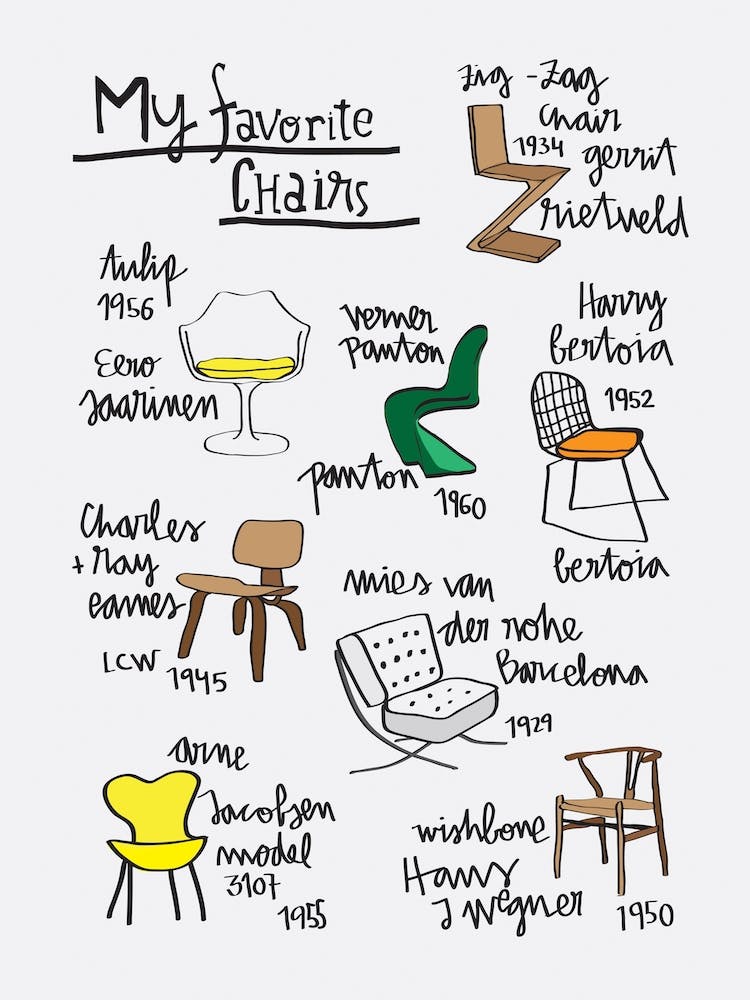 My favorite
CHAirs
zig-zag
chair
1934 gerrit
rietveld
tulip
1956
Eero
saarinen
verner
panton
panton
1960
Harry
bertoia
1952
bertoia
Charles
+ ray
eames
LCW 1945
mies van
der rohe
Barcelona
1929
arne
Jacobsen
model
3107
1955
wishbone
Hans
J Wegner 1950